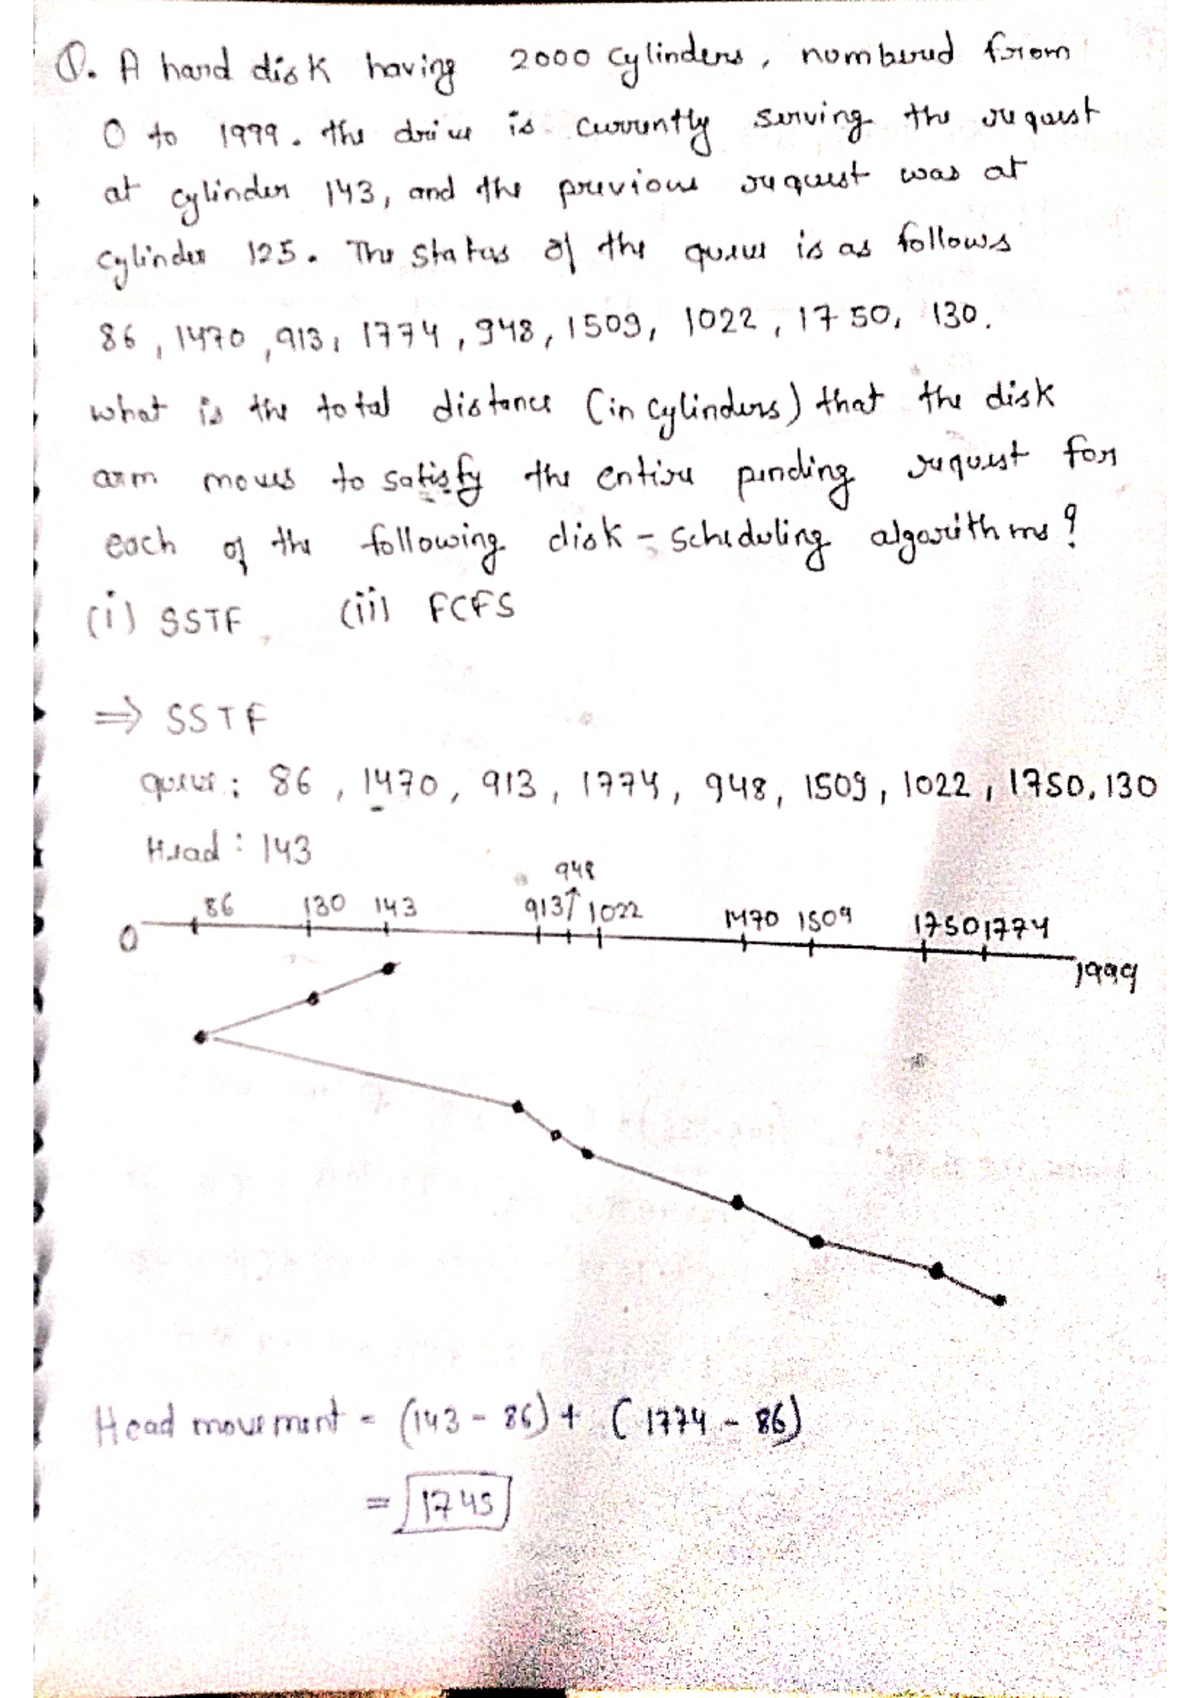 Q. A hard disk having 2000 cylinders, numbered from
0 to 1999. the drive is currently serving the request
at cylinder 143, and the previous request was at
cylinder 125. The status of the queue is as follows
86, 1470, 913, 1774, 948, 1509, 1022, 1750, 130.
what is the total distance (in cylinders) that the disk
arm moves to satisfy the entire pending request for
each of the following disk-scheduling algorithms?
(i) SSTF (ii) FCFS
⇒ SSTF
queue: 86, 1470, 913, 1774, 948, 1509, 1022, 1750, 130
Head: 143
948
86 130 143 913↑ 1022 1470 1509 1750 1774
0 1999
Head movement = (143 - 86) + (1774 - 86)
= 1745